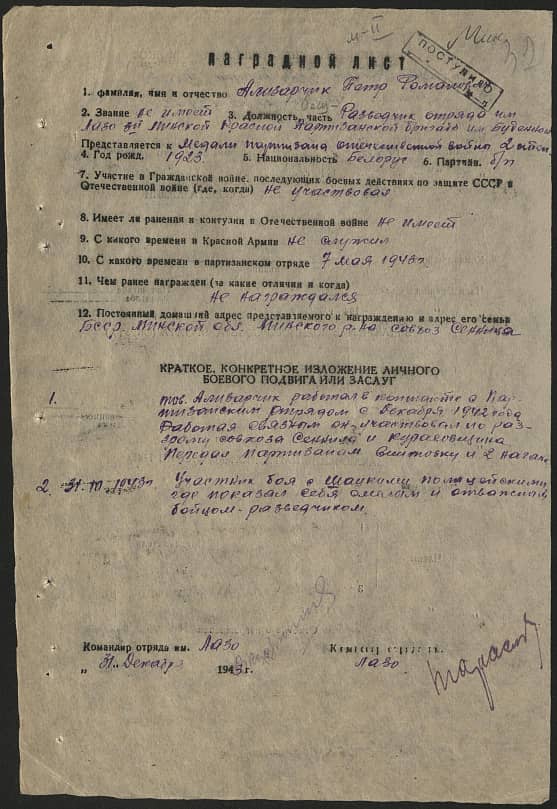 м-II
ПОСТУПИЛО
НАГРАДНОЙ ЛИСТ
1. фамилия, имя и отчество Аливарчик Петр Романов
2. Звание не имеет 3. Должность, часть Разведчик отряда им
Лазо Минской Краской Партизанской бригады им. Буденного
Представляется к Медали партизана отечественной война 2 степ
4. Год рожд. 1923. 5. Национальность Белорус 6. Партийн. б/п
7. Участие в Гражданской войне, последующих боевых действиях по защите СССР в
Отечественной войне (где, когда) не участвовал
8. Имеет ли ранения и контузии в Отечественной войне не имеет
9. С какого времени в Красной Армии не служил
10. С какого времени в партизанском отряде 7 мая 1943г.
11. Чем ранее награжден (за какие отличия и когда)
не награждался
12. Постоянный домашний адрес представляемого к награждению и адрес его семьи
Бсср. Минской обл. Минского р-на совхоз Сенница
КРАТКОЕ, КОНКРЕТНОЕ ИЗЛОЖЕНИЕ ЛИЧНОГО
БОЕВОГО ПОДВИГА ИЛИ ЗАСЛУГ
1. тов. Аливарчик работал в контакте с Пар-
тизанским отрядом с декабря 1942 года
Работая связным он участвовал по раз-
грому совхоза Сенница и Курасовщина
Передал партизанам винтовку и 2 нагана
2. 31-XII-1943г. Участник боя с полицейскими
где показал себя смелым и отважным
бойцом-разведчиком.
Командир отряда им. Лазо
Лазо
"31" Декабря 194 г.